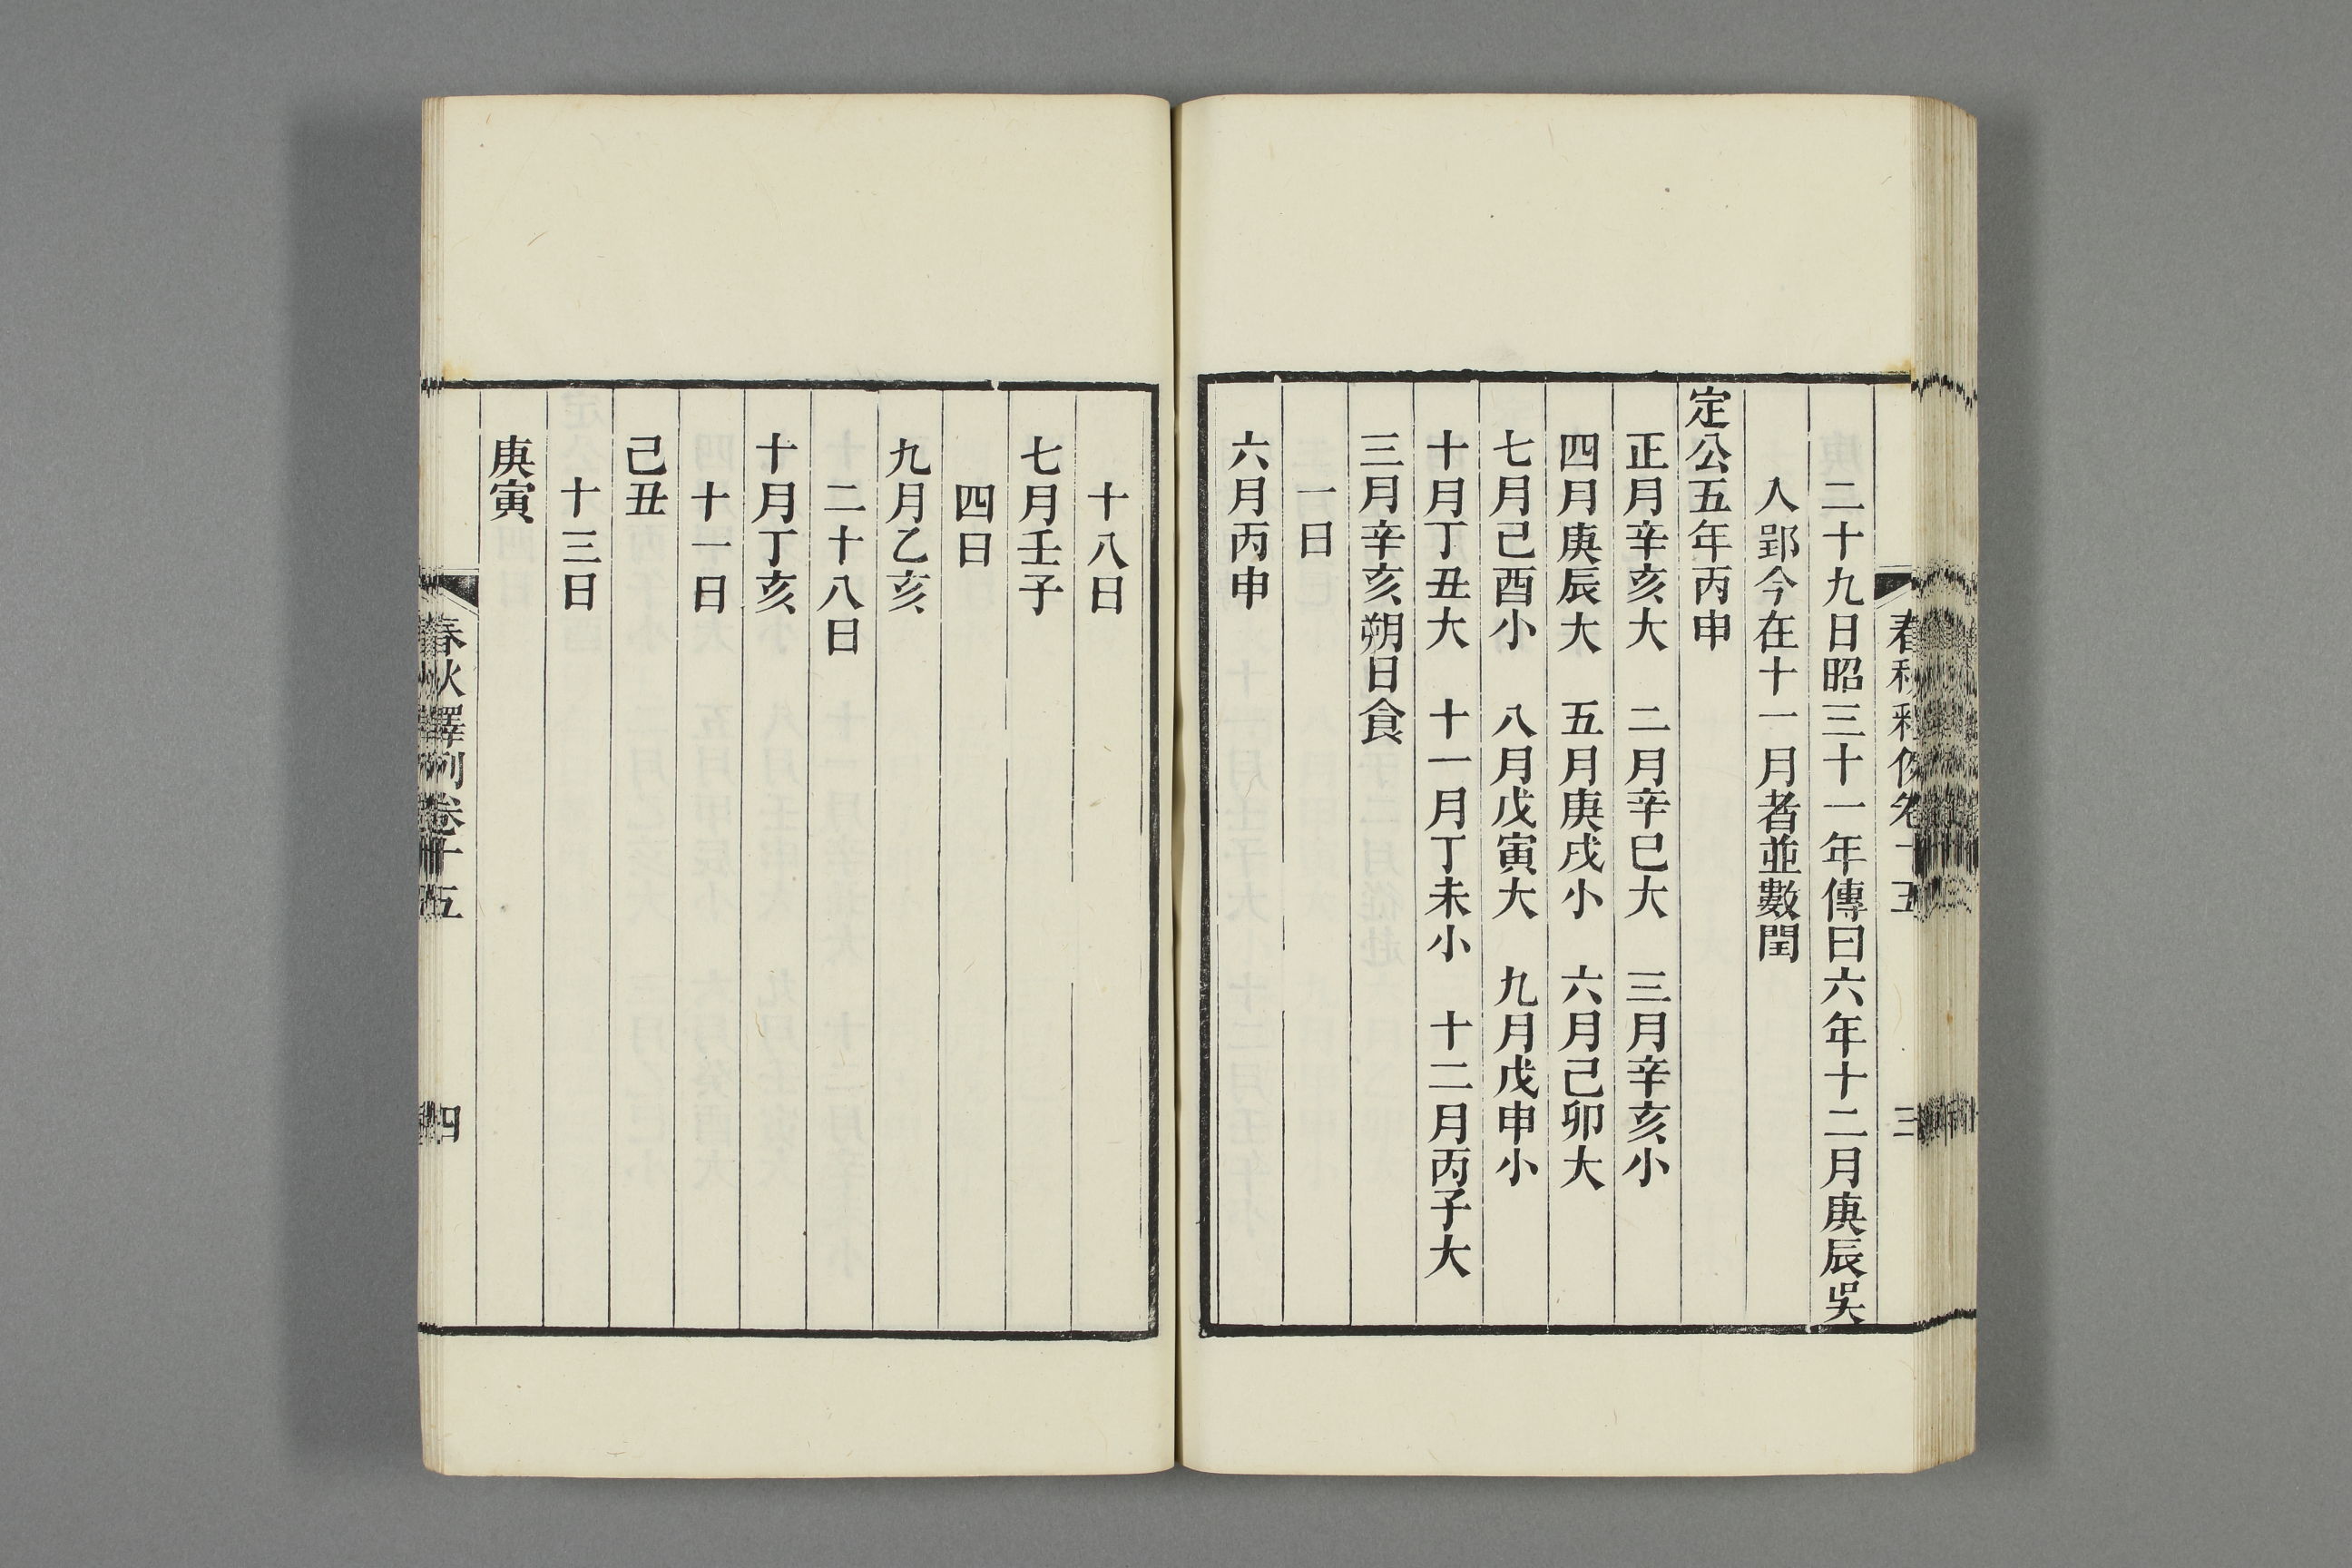 春秋釋例卷十五 三
二十九日昭三十一年傳曰六年十二月庚辰吳
入郢今在十一月者並數閏
定公五年丙申
正月辛亥大 二月辛巳大 三月辛亥小
四月庚辰大 五月庚戌小 六月己卯大
七月己酉小 八月戊寅大 九月戊申小
十月丁丑大 十一月丁未小 十二月丙子大
三月辛亥朔日食
一日
六月丙申
十八日
七月壬子
四日
九月乙亥
二十八日
十月丁亥
十一日
己丑
十三日
庚寅
春秋釋例卷十五 四